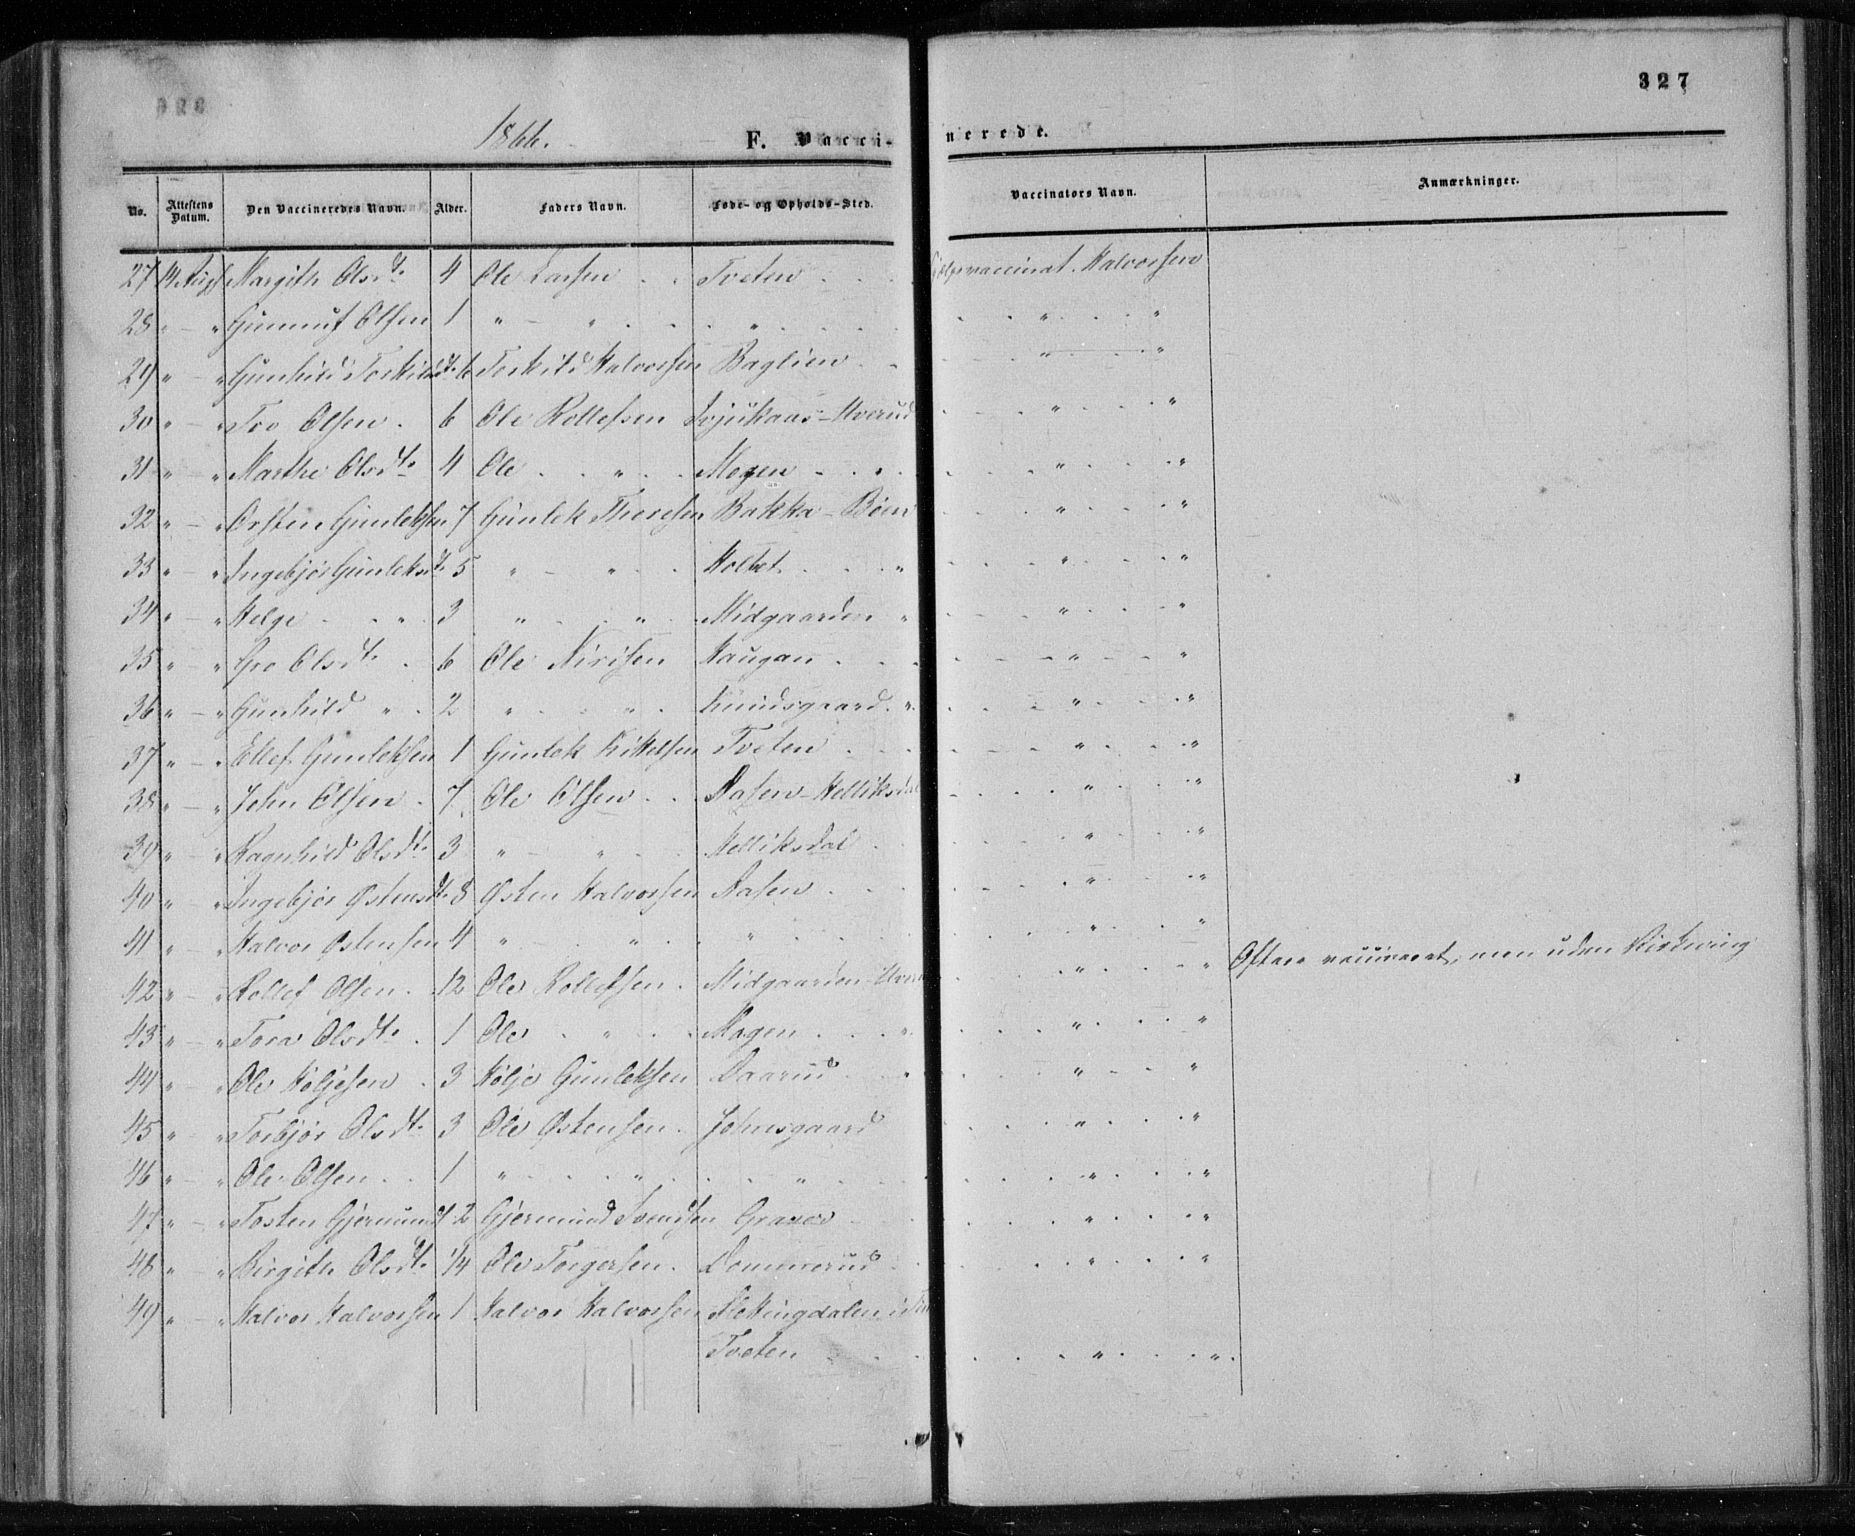 327
1866.
F. Vaccinerede.
No. Attestens Datum. Den Vaccineredes Navn. Alder. Faders Navn. Føde- og Opholds-Sted. Vaccinators Navn. Anmærkninger.
27 14 Aug Margith Olsdtr 4 Ole Larsen Tveten Hjelpevaccinat. Halvorsen
28 " - " Gunnuf Olsen 1 " - " " " "
29 " - " Gunhild Torkildsdtr 6 Torkild Halvorsen Baglien " "
30 " - " Tov Olsen 6 Ole Rollefsen - Uverud " "
31 " - " Marthe Olsdtr 4 Ole " Mogen " "
32 " - " Østen Gunleksen 7 Gunlek Thoresen Bakka - Bøen " "
33 " - " Ingebjør Gunleksdtr 5 " - " Holtet " " "
34 " - " Helge " 3 " " Midgaarden " " "
35 " - " Gro Olsdtr 6 Ole Nirisen Haugan " "
36 " - " Gunhild " 2 " " Knudsgaard " " "
37 " - " Ellef Gunleksen 1 Gunlek Kittelsen Tveten " "
38 " - " John Olsen 7 Ole Olsen Aasen - Helliksdal " "
39 " - " Ragnhild Olsdtr 3 " - " Helliksdal " "
40 " - " Ingebjør Østensdtr 8 Østen Halvorsen Aasen " "
41 " - " Halvor Østensen 4 " - " " " "
42 " - " Rollef Olsen 12 Ole Rollefsen Midgaarden - " " Oftere vaccineret, men uden Virkning
43 " - " Tora Olsdtr 1 Ole " Mogen " " "
44 " - " Ole Høljesen 3 Hølje Gunleksen Daarud " "
45 " - " Torbjør Olsdtr 3 Ole Østensen Johnsgaard " "
46 " - " Ole Olsen 1 " " " " "
47 " - " Tosten Gjermunds 2 Gjermund Svendsen Graver " "
48 " - " Birgith Olsdtr 1/4 Ole Torgersen Dommerud " "
49 " - " Halvor Halvorsen 1 Halvor Halvorsen
Tveten " "